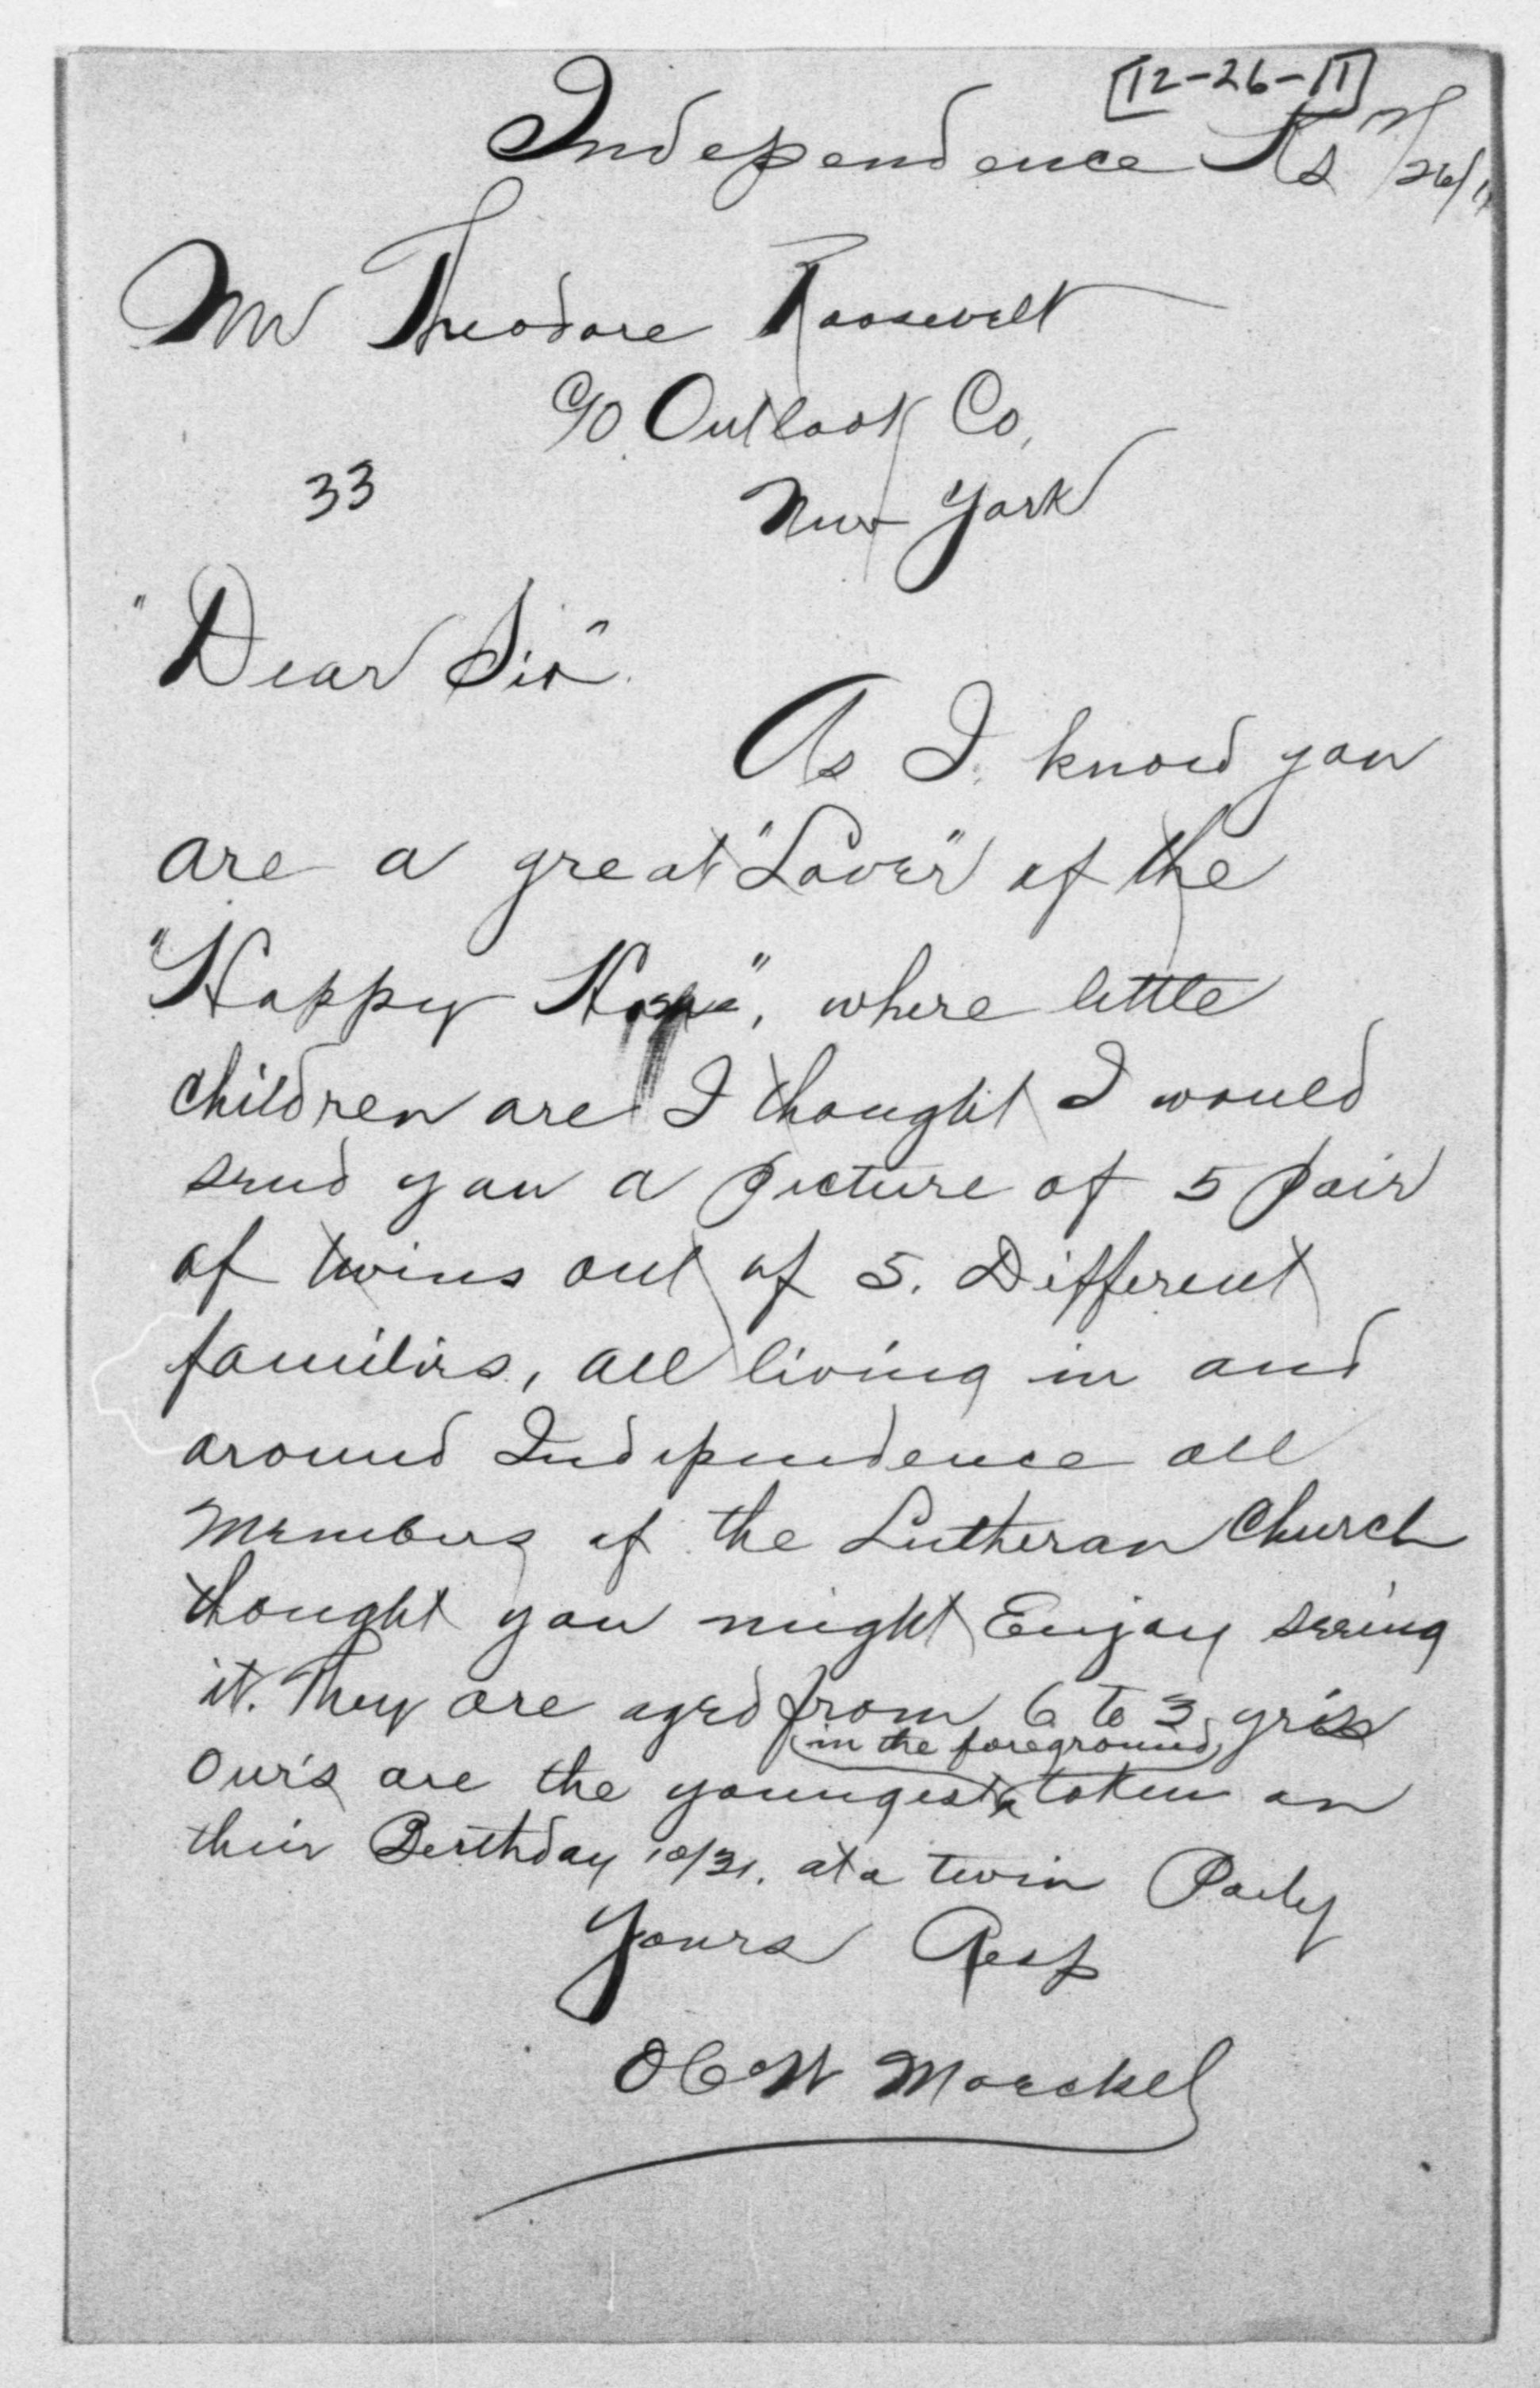 [12-26-11]
Independence Ks 12/26/11
Mr Theodore Roosevelt
c/o Outlook Co,
33
New York
"Dear Sir"
As I know you
are a great "Lover" of the
"Happy Home", where little
children are I thought I would
send you a picture of 5 pair
of twins out of 5. Different
families, all living in and
around Independence all
Members of the Lutheran Church
thought you might Enjoy seeing
it. They are aged from 6 to 3 yrs
(in the foreground)
Our's are the youngest taken on
their Birthday 10/31. at a twin Party
Yours Resp
Moeckel